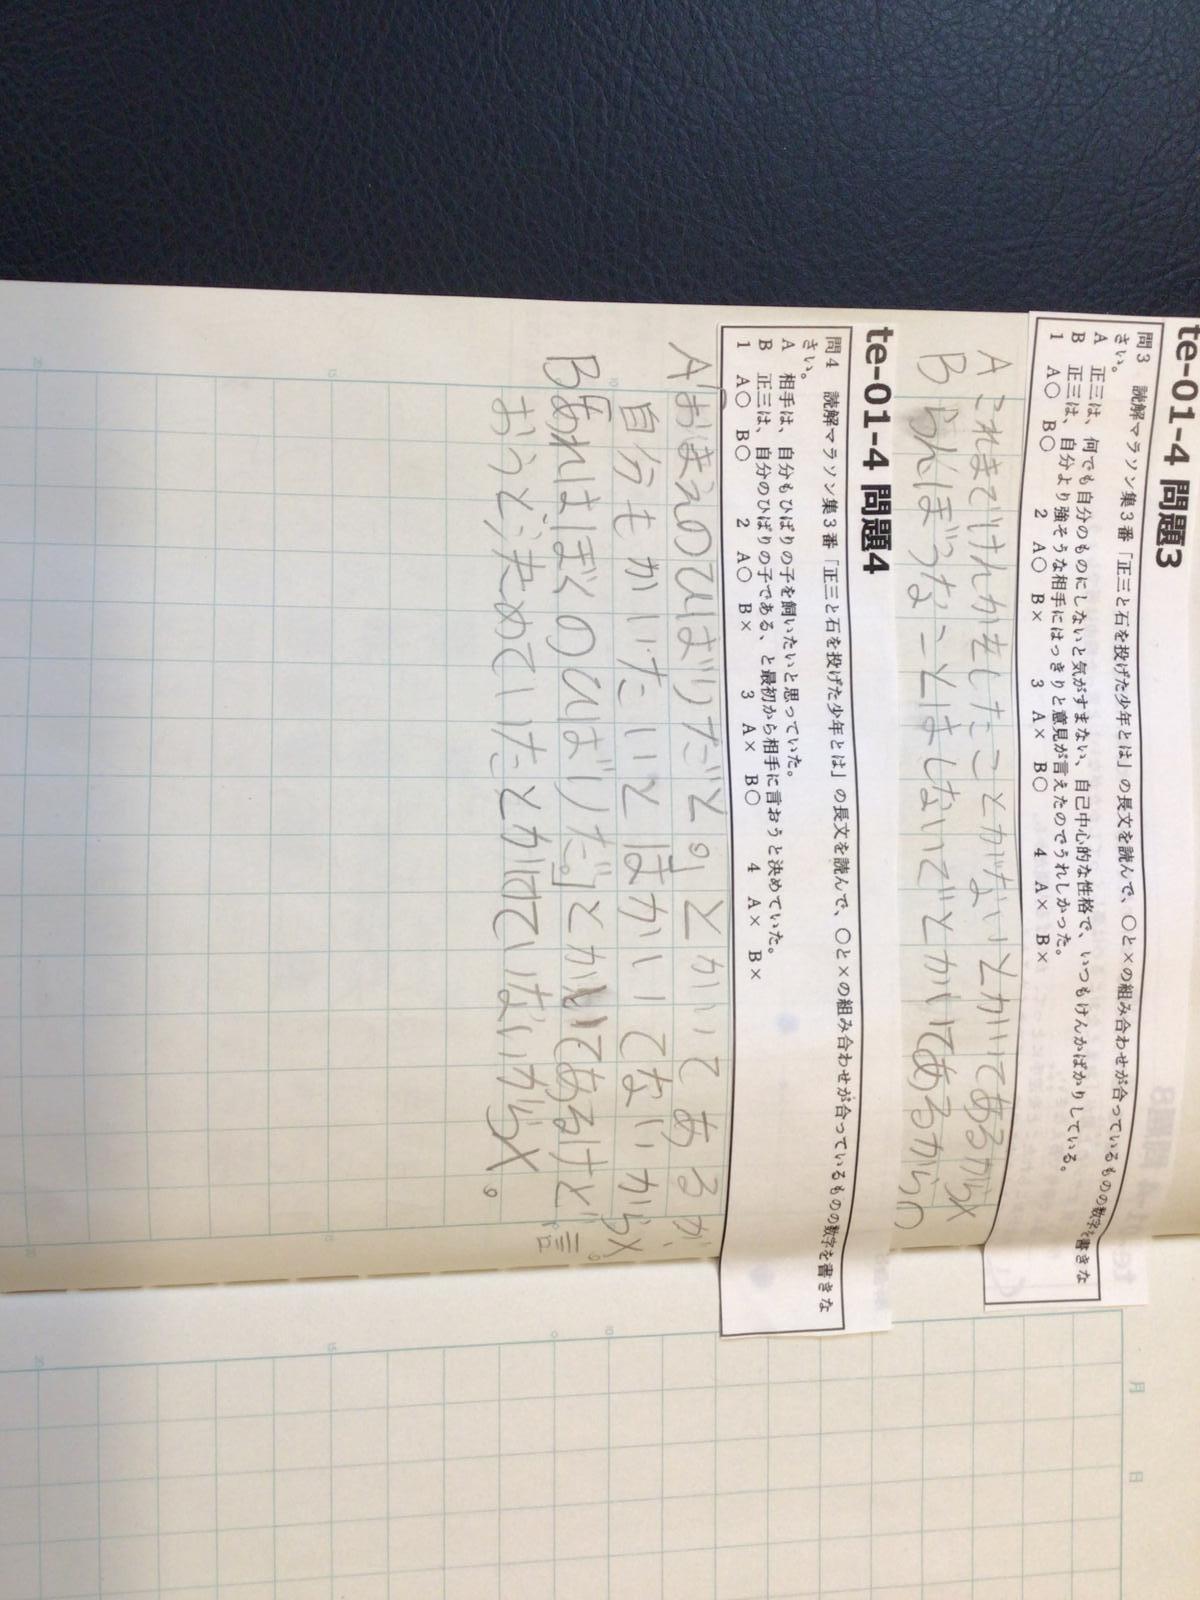 te-01-4 問題3
問3 読解マラソン集3番「正三と石を投げた少年とは」の長文を読んで、○と×の組み合わせが合っているものの数字を書きな
さい。
A 正三は、何でも自分のものにしないと気がすまない、自己中心的な性格で、いつもけんかばかりしている。
B 正三は、自分より強そうな相手にはっきりと意見が言えたのでうれしかった。
1 A○ B○ 2 A○ B× 3 A× B○ 4 A× B×
A これまでけんかをしたことがないとかいてあるから×
B らんぼうなことはしないでとかいてあるから○
te-01-4 問題4
問4 読解マラソン集3番「正三と石を投げた少年とは」の長文を読んで、○と×の組み合わせが合っているものの数字を書きな
さい。
A 相手は、自分もひばりの子を飼いたいと思っていた。
B 正三は、自分のひばりの子である、と最初から相手に言おうと決めていた。
1 A○ B○ 2 A○ B× 3 A× B○ 4 A× B×
A「おまえのひばりだと。」とかいてあるが
自分もかいたいとはかいてないから×。
B「あれはぼくのひばりだ。」とかいてあるけど言
おうと決めていたとかけていないから×。
月 日